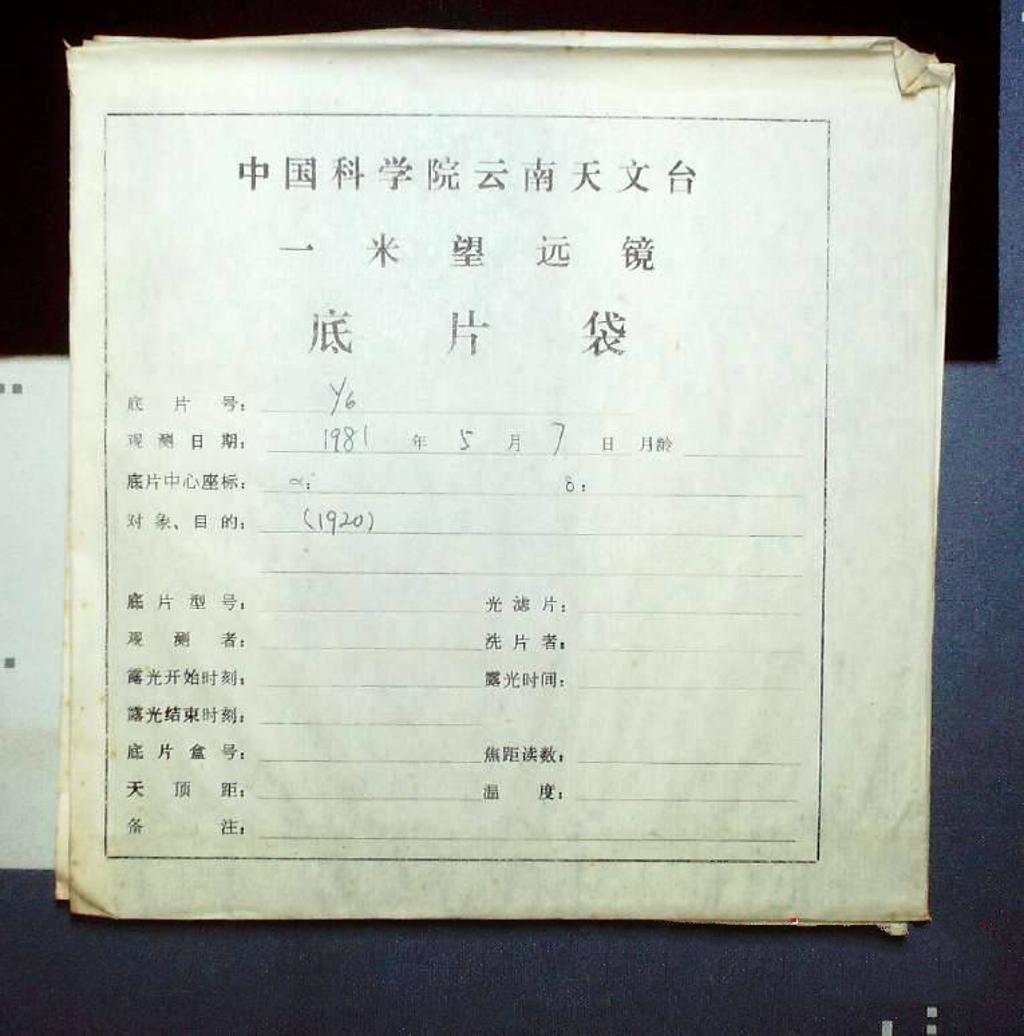 中国科学院云南天文台
一米望远镜
底片袋
底片号: Y6
观测日期: 1981 年 5 月 7 日 月龄
底片中心座标: α: δ:
对象、目的: (1920)
底片型号: 光滤片:
观测者: 洗片者:
露光开始时刻: 露光时间:
露光结束时刻:
底片盒号: 焦距读数:
天顶距: 温度:
备注: